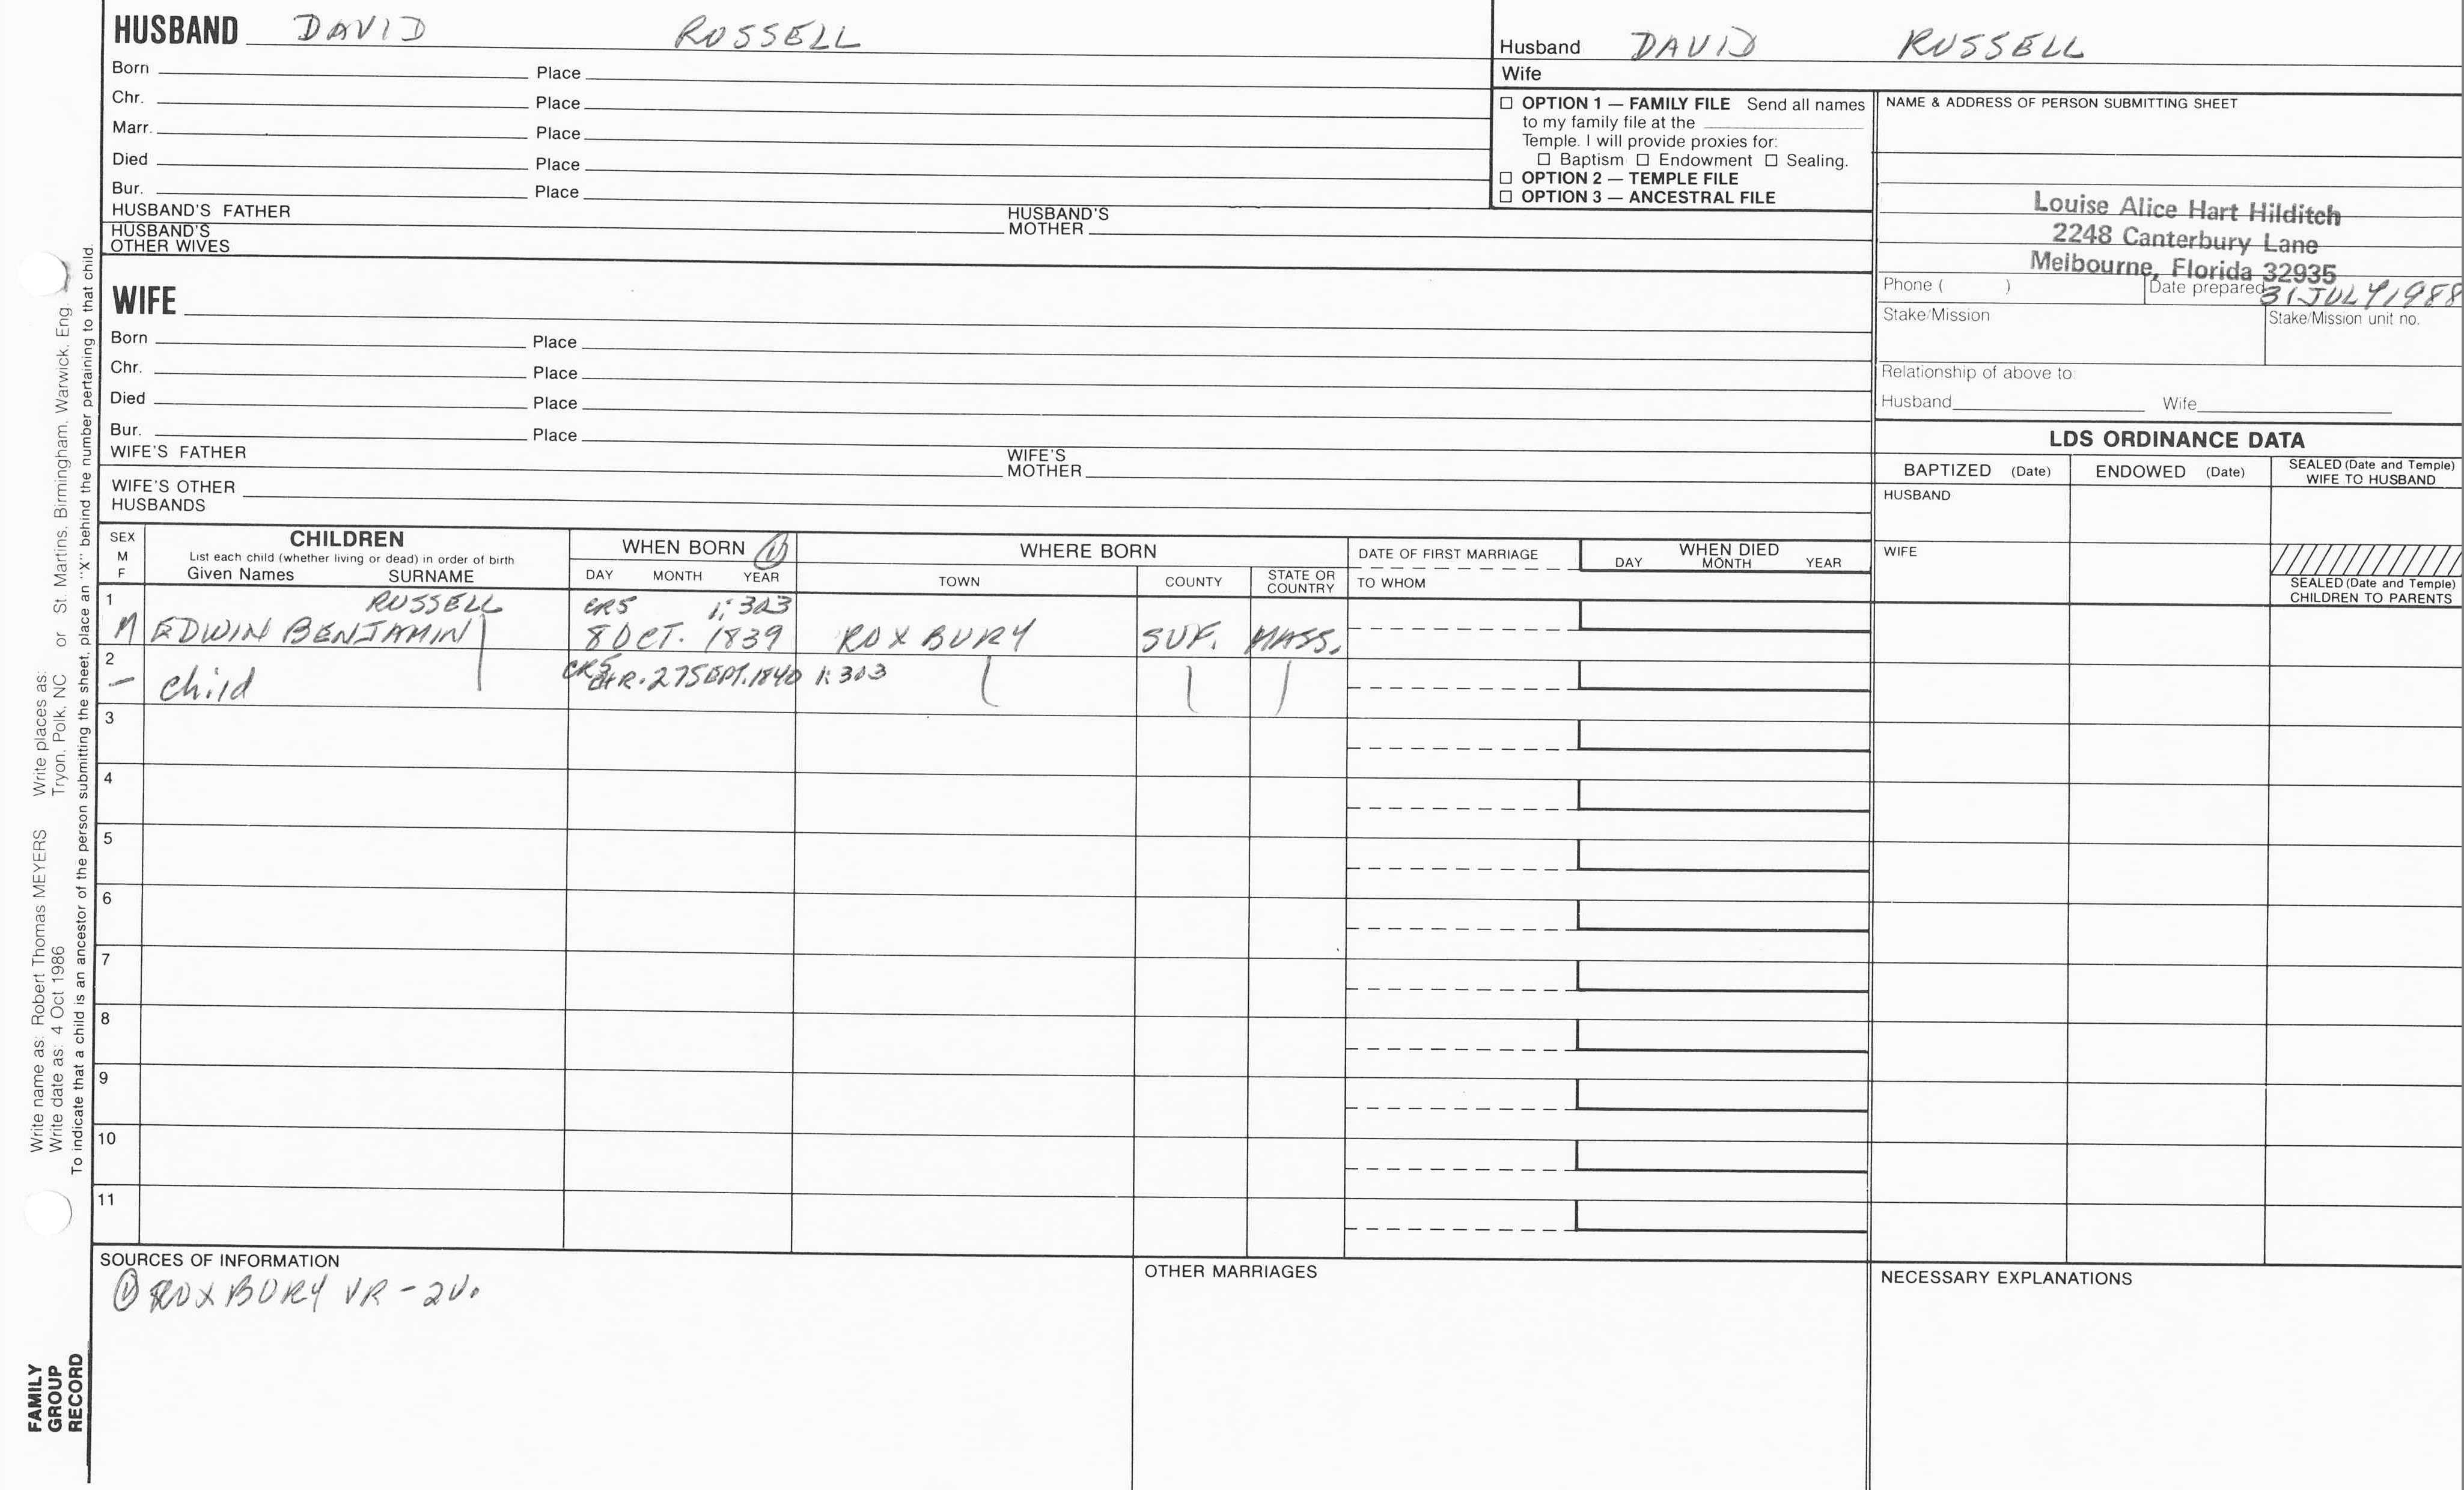 HUSBAND DAVID RUSSELL
Born Place
Chr. Place
Marr. Place
Died Place
Bur. Place
HUSBAND'S FATHER HUSBAND'S MOTHER
HUSBAND'S OTHER WIVES
WIFE
Born Place
Chr. Place
Died Place
Bur. Place
WIFE'S FATHER WIFE'S MOTHER
WIFE'S OTHER HUSBANDS
Husband DAVID RUSSELL
Wife
☐ OPTION 1 — FAMILY FILE Send all names
to my family file at the
Temple. I will provide proxies for:
☐ Baptism ☐ Endowment ☐ Sealing.
☐ OPTION 2 — TEMPLE FILE
☐ OPTION 3 — ANCESTRAL FILE
NAME & ADDRESS OF PERSON SUBMITTING SHEET
Louise Alice Hart Hilditch
2248 Canterbury Lane
Melbourne, Florida 32935
Phone ( ) Date prepared 31 JULY 1988
Stake/Mission Stake/Mission unit no.
Relationship of above to:
Husband Wife
LDS ORDINANCE DATA
BAPTIZED (Date) ENDOWED (Date) SEALED (Date and Temple) WIFE TO HUSBAND
HUSBAND
WIFE
SEALED (Date and Temple)
CHILDREN TO PARENTS
SEX M F
CHILDREN
List each child (whether living or dead) in order of birth
Given Names SURNAME
WHEN BORN (1)
DAY MONTH YEAR
WHERE BORN
TOWN COUNTY STATE OR COUNTRY
DATE OF FIRST MARRIAGE
TO WHOM
WHEN DIED
DAY MONTH YEAR
1 RUSSELL CR5 1:303
M EDWIN BENJAMIN 8 OCT. 1839 ROXBURY SUF. MASS.
2 CR5
— child CHR. 27 SEPT. 1840 1:303
3
4
5
6
7
8
9
10
11
SOURCES OF INFORMATION
(1) ROXBURY VR - 2V.
OTHER MARRIAGES
NECESSARY EXPLANATIONS
Write name as: Robert Thomas MEYERS Write places as:
Write date as: 4 Oct 1986 Tryon, Polk, NC or St. Martins, Birmingham, Warwick, Eng.
To indicate that a child is an ancestor of the person submitting the sheet, place an "X" behind the number pertaining to that child.
FAMILY
GROUP
RECORD